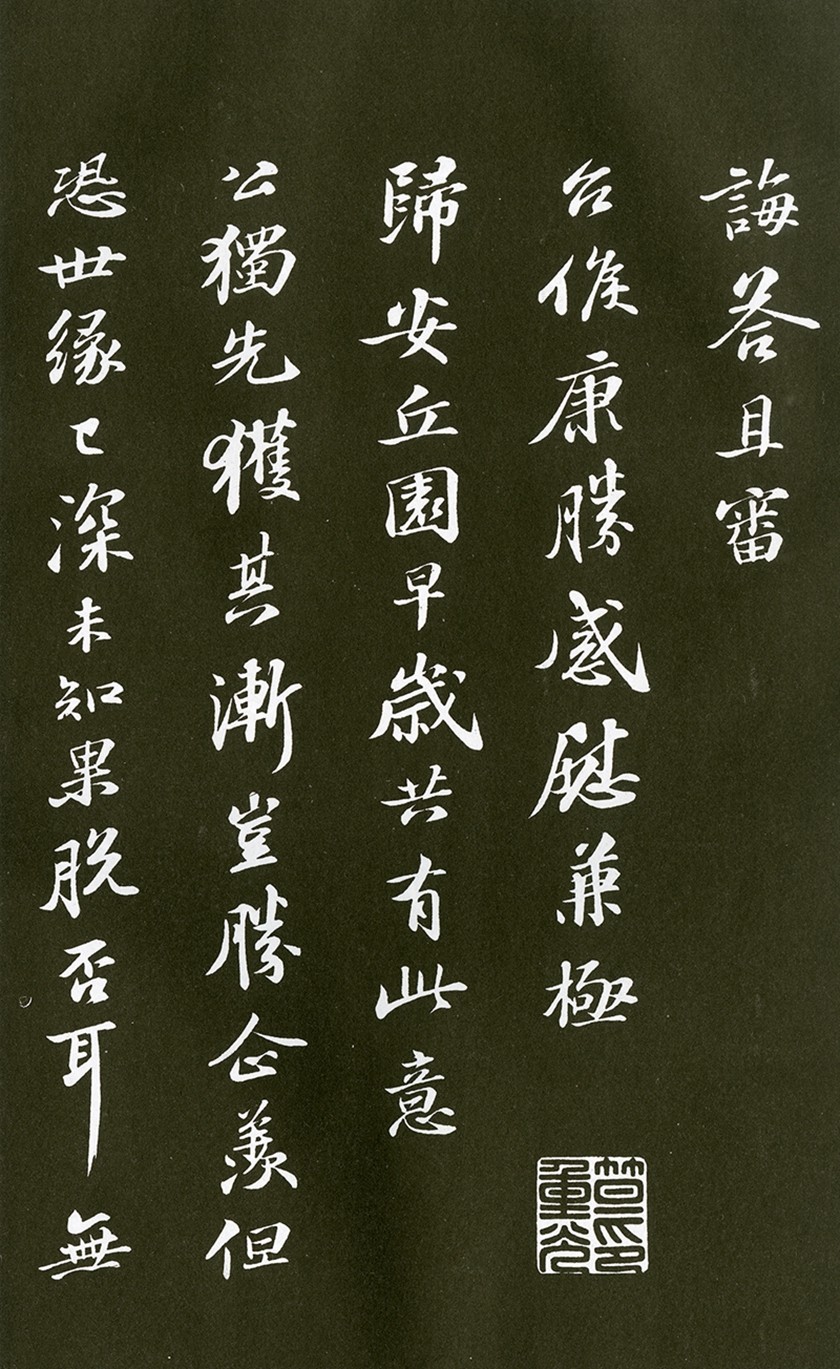 誨答且審
台候康勝感慰兼極
歸安丘園早歲共有此意
公獨先獲其漸豈勝企羨但
恐世緣已深未知果脫否耳無
笪重光印